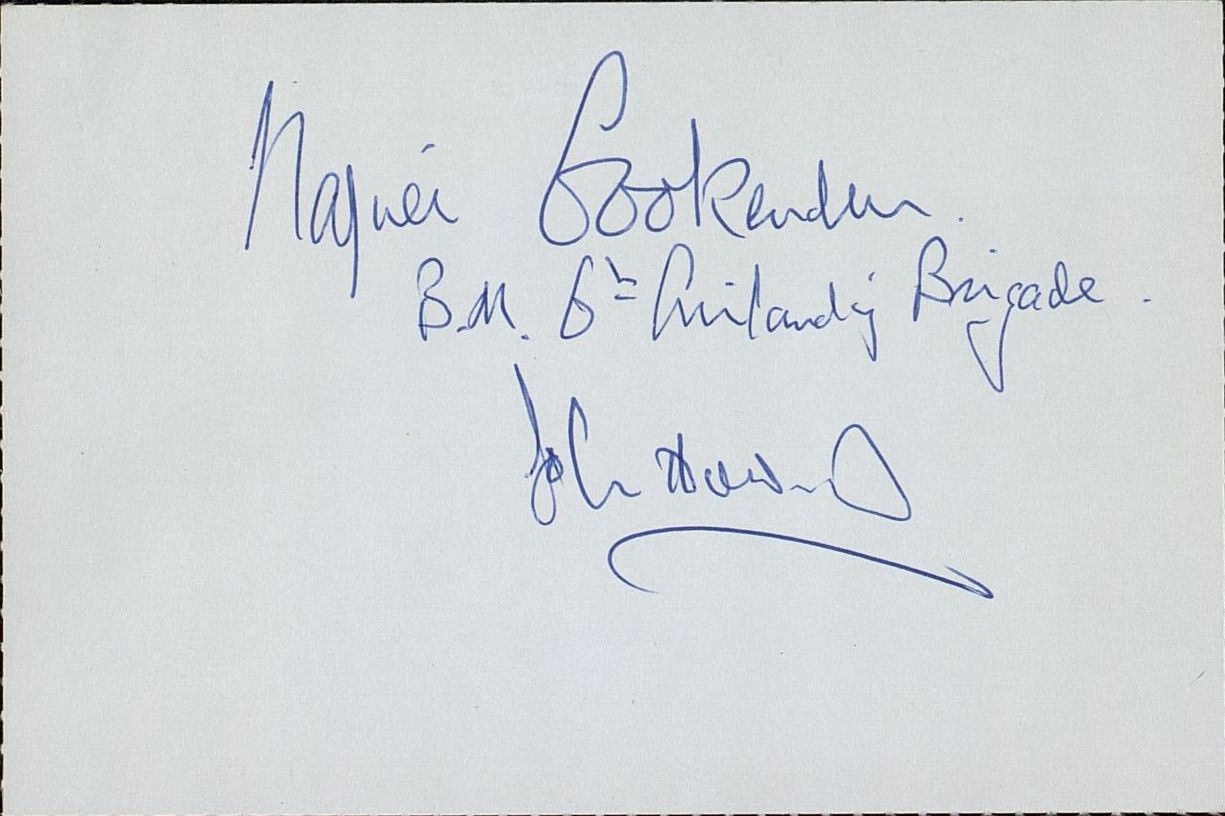 Napier Crookenden.
B.M. 6th Airlanding Brigade.
John Howard